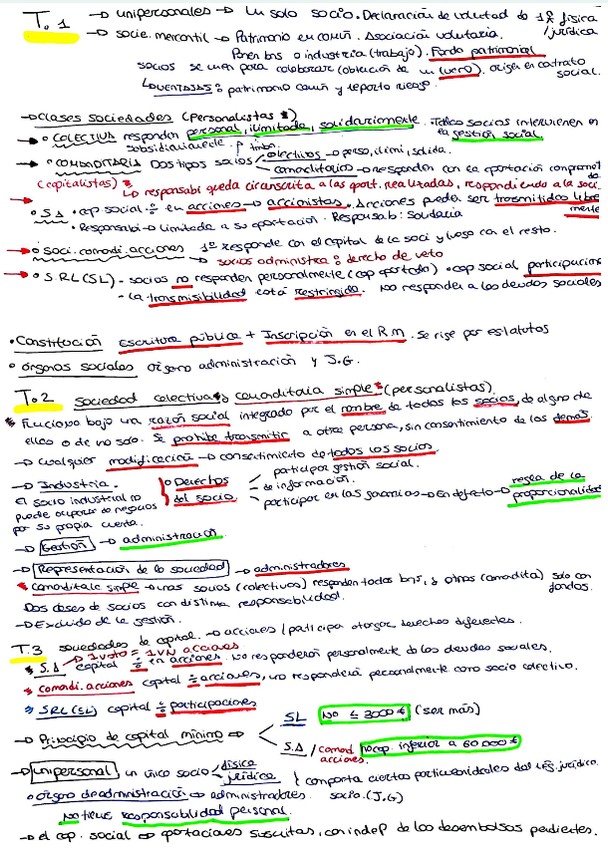 T. 1 → unipersonales → Un solo socio. Declaración de voluntad de 1ª física /jurídica
→ socie. mercantil → Patrimonio en común. Asociación voluntaria.
Ponen bns o industria (trabajo). Fondo patrimonial
socios se unen para colaborar (obtención de un lucro). origen en contrato social.
VENTAJAS: patrimonio común y reparto riesgo.
→ Clases sociedades (Personalistas *)
→ • COLECTIVA responden personal, ilimitada, solidariamente. Todos socios intervienen en la gestión social
subsidiariamente
→ • COMANDITARIA Dos tipos socios colectivos → perso, ilimi, solida.
comanditarios → responden con la aportación comprometida
(capitalistas) * ↳ responsabi queda circunscrita a las aport. realizadas, respondiendo a la soci.
→ • S.A • cap social ÷ en acciones → accionistas. Acciones pueden ser transmitidas libremente
• Responsabi → limitada a su aportación. Responsab: Solidaria
→ • Soci. comandi. acciones 1º responde con el capital de la soci y luego con el resto.
→ socios administra: derecho de veto
→ • S.R.L (SL) - socios no responden personalmente (cap aportado) • cap social participaciones
- La transmisibilidad está restringida. No responden a las deudas sociales
• Constitución escritura pública + Inscripción en el RM. Se rige por estatutos
• órganos sociales órgano administración y J.G.
T.2 Sociedad colectiva y comanditaria simple * (personalistas)
* Funciona bajo una razón social integrado por el nombre de todos los socios, de alguno de
ellos o de uno solo. Se prohíbe transmitir a otra persona, sin consentimiento de los demás.
→ cualquier modificación → consentimiento de todos los socios.
→ Industria. • Derechos del socio. participar gestión social.
de información.
participar en las ganancias → En defecto → regla de la proporcionalidad
El socio industrial no
puede ocuparse de negocios
por su propia cuenta.
→ Gestión → administración
→ Representación de la sociedad → administradores
* comanditaria simple → unos socios (colectivos) responden todos bns, y otros (comandita) solo con fondos.
Dos clases de socios con distinta responsabilidad.
→ Excluido de la gestión.
T.3 sociedades de capital. → acciones / participa otorgan derechos diferentes.
→ 1 voto = 1 VN acciones
* S.A capital ÷ en acciones. No responderán personalmente de las deudas sociales.
* comandi. acciones capital ÷ acciones, uno responderá personalmente como socio colectivo.
* SRL (SL) capital ÷ participaciones
→ Principio de capital mínimo ⇒ SL No ≤ 3000 € (ser más)
S.A / comand acciones. No cap. inferior a 60 000 €
→ Unipersonal un único socio física
jurídica } comporta ciertas particularidades del rég. jurídico.
• órgano de administración → administradores. socio. (J.G)
No tiene responsabilidad personal.
→ el cap. social → aportaciones suscritas, con indep de los desembolsos pendientes.